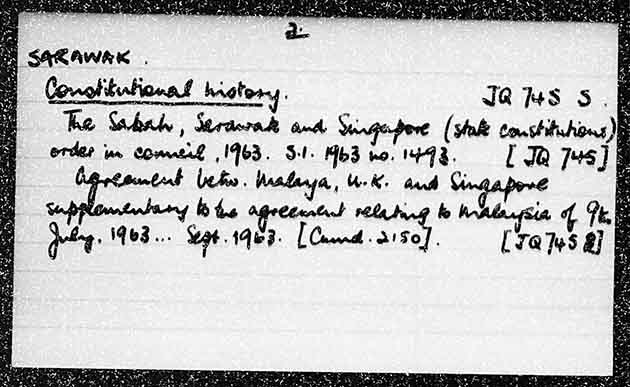 2.
SARAWAK.
Constitutional history. JQ 745 S.
The Sabah, Sarawak and Singapore (state constitutions)
order in council, 1963. S.I. 1963 no. 1493. [JQ 745]
Agreement betw. Malaya, U.K. and Singapore
supplementary to the agreement relating to Malaysia of 9th
July, 1963... Sept. 1963. [Cmnd. 2150]. [JQ 745